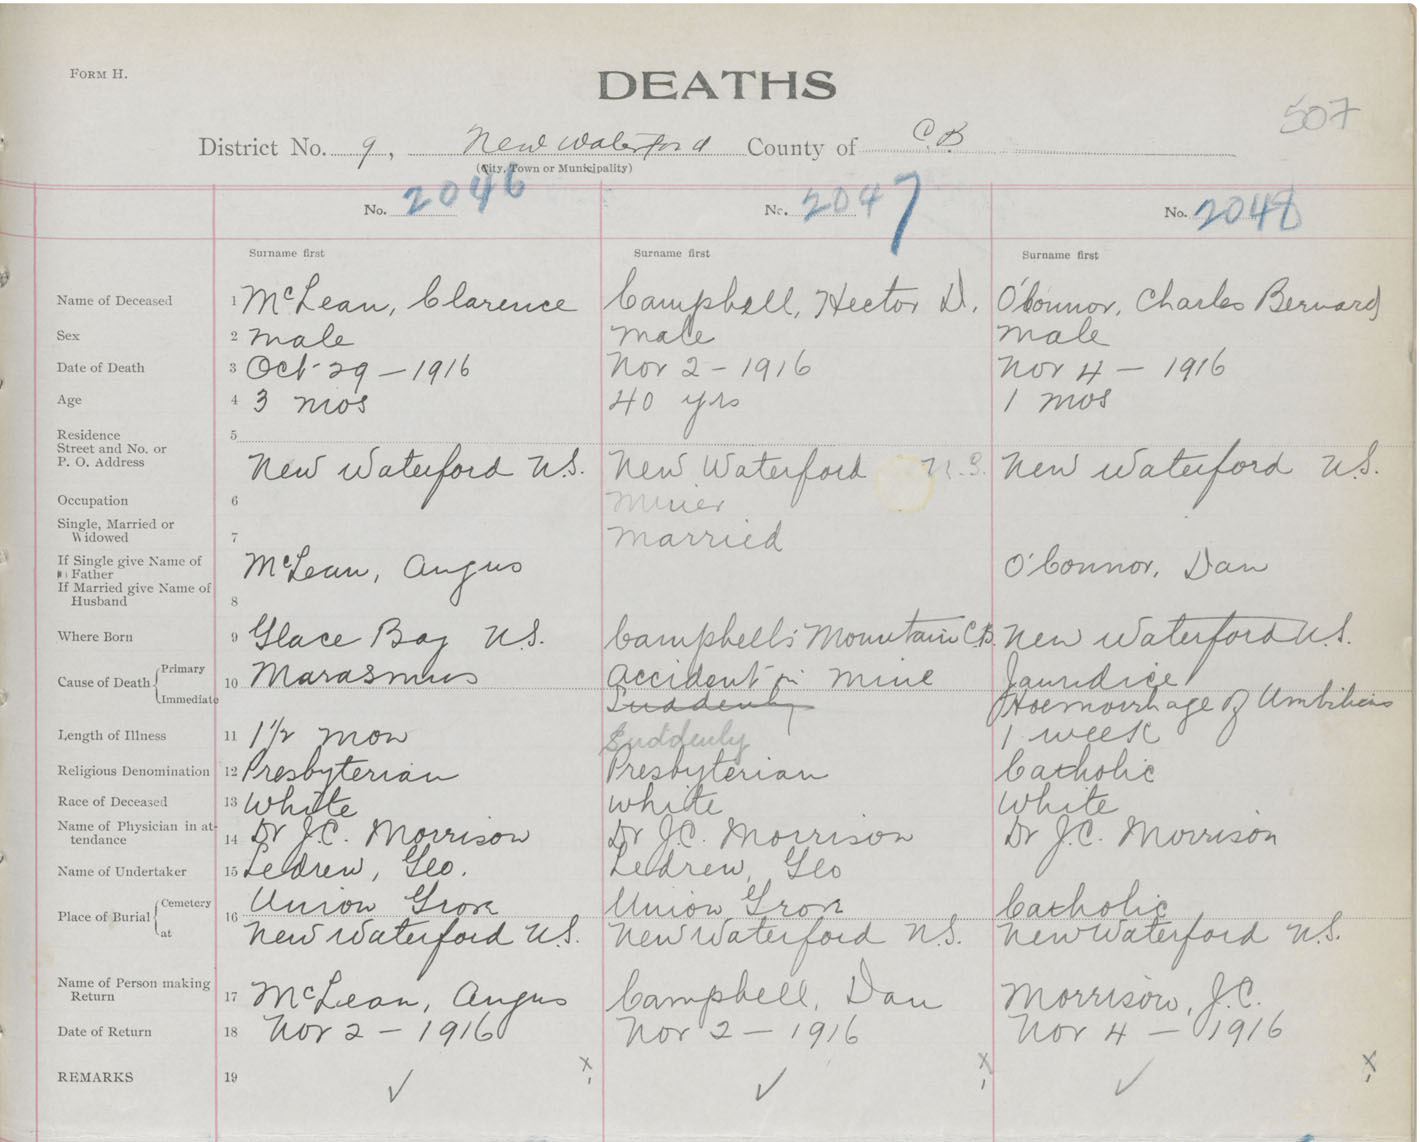 FORM H.
DEATHS
507
District No. 9, New Waterford County of C.B
(City, Town or Municipality)
No. 2046 No. 2047 No. 2048
Surname first Surname first Surname first
Name of Deceased 1 McLean, Clarence Campbell, Hector D. O'Connor, Charles Bernard
Sex 2 male male male
Date of Death 3 Oct-29-1916 Nov 2-1916 Nov 4-1916
Age 4 3 mos 40 yrs 1 mos
Residence 5
Street and No. or
P. O. Address New Waterford N.S. New Waterford N.S. New Waterford N.S.
Occupation 6 Miner
Single, Married or
Widowed 7 Married
If Single give Name of
Father McLean, Angus O'Connor, Dan
If Married give Name of
Husband 8
Where Born 9 Glace Bay N.S. Campbells Mountain C.B. New Waterford N.S.
Cause of Death Primary 10 Marasmus Accident in mine Jaundice
Immediate Suddenly Hoemorrhage of Umbilicus
Length of Illness 11 1 1/2 mon Suddenly 1 week
Religious Denomination 12 Presbyterian Presbyterian Catholic
Race of Deceased 13 White white White
Name of Physician in at-
tendance 14 Dr J.C. Morrison Dr J.C. Morrison Dr J.C. Morrison
Name of Undertaker 15 Ledrew, Geo. Ledrew, Geo
Place of Burial Cemetery 16 Union Grove Union Grove Catholic
at New Waterford N.S. New Waterford N.S. New Waterford N.S.
Name of Person making
Return 17 McLean, Angus Campbell, Dan Morrison, J.C.
Date of Return 18 Nov 2-1916 Nov 2-1916 Nov 4-1916
REMARKS 19 ✓ x ✓ x ✓ x